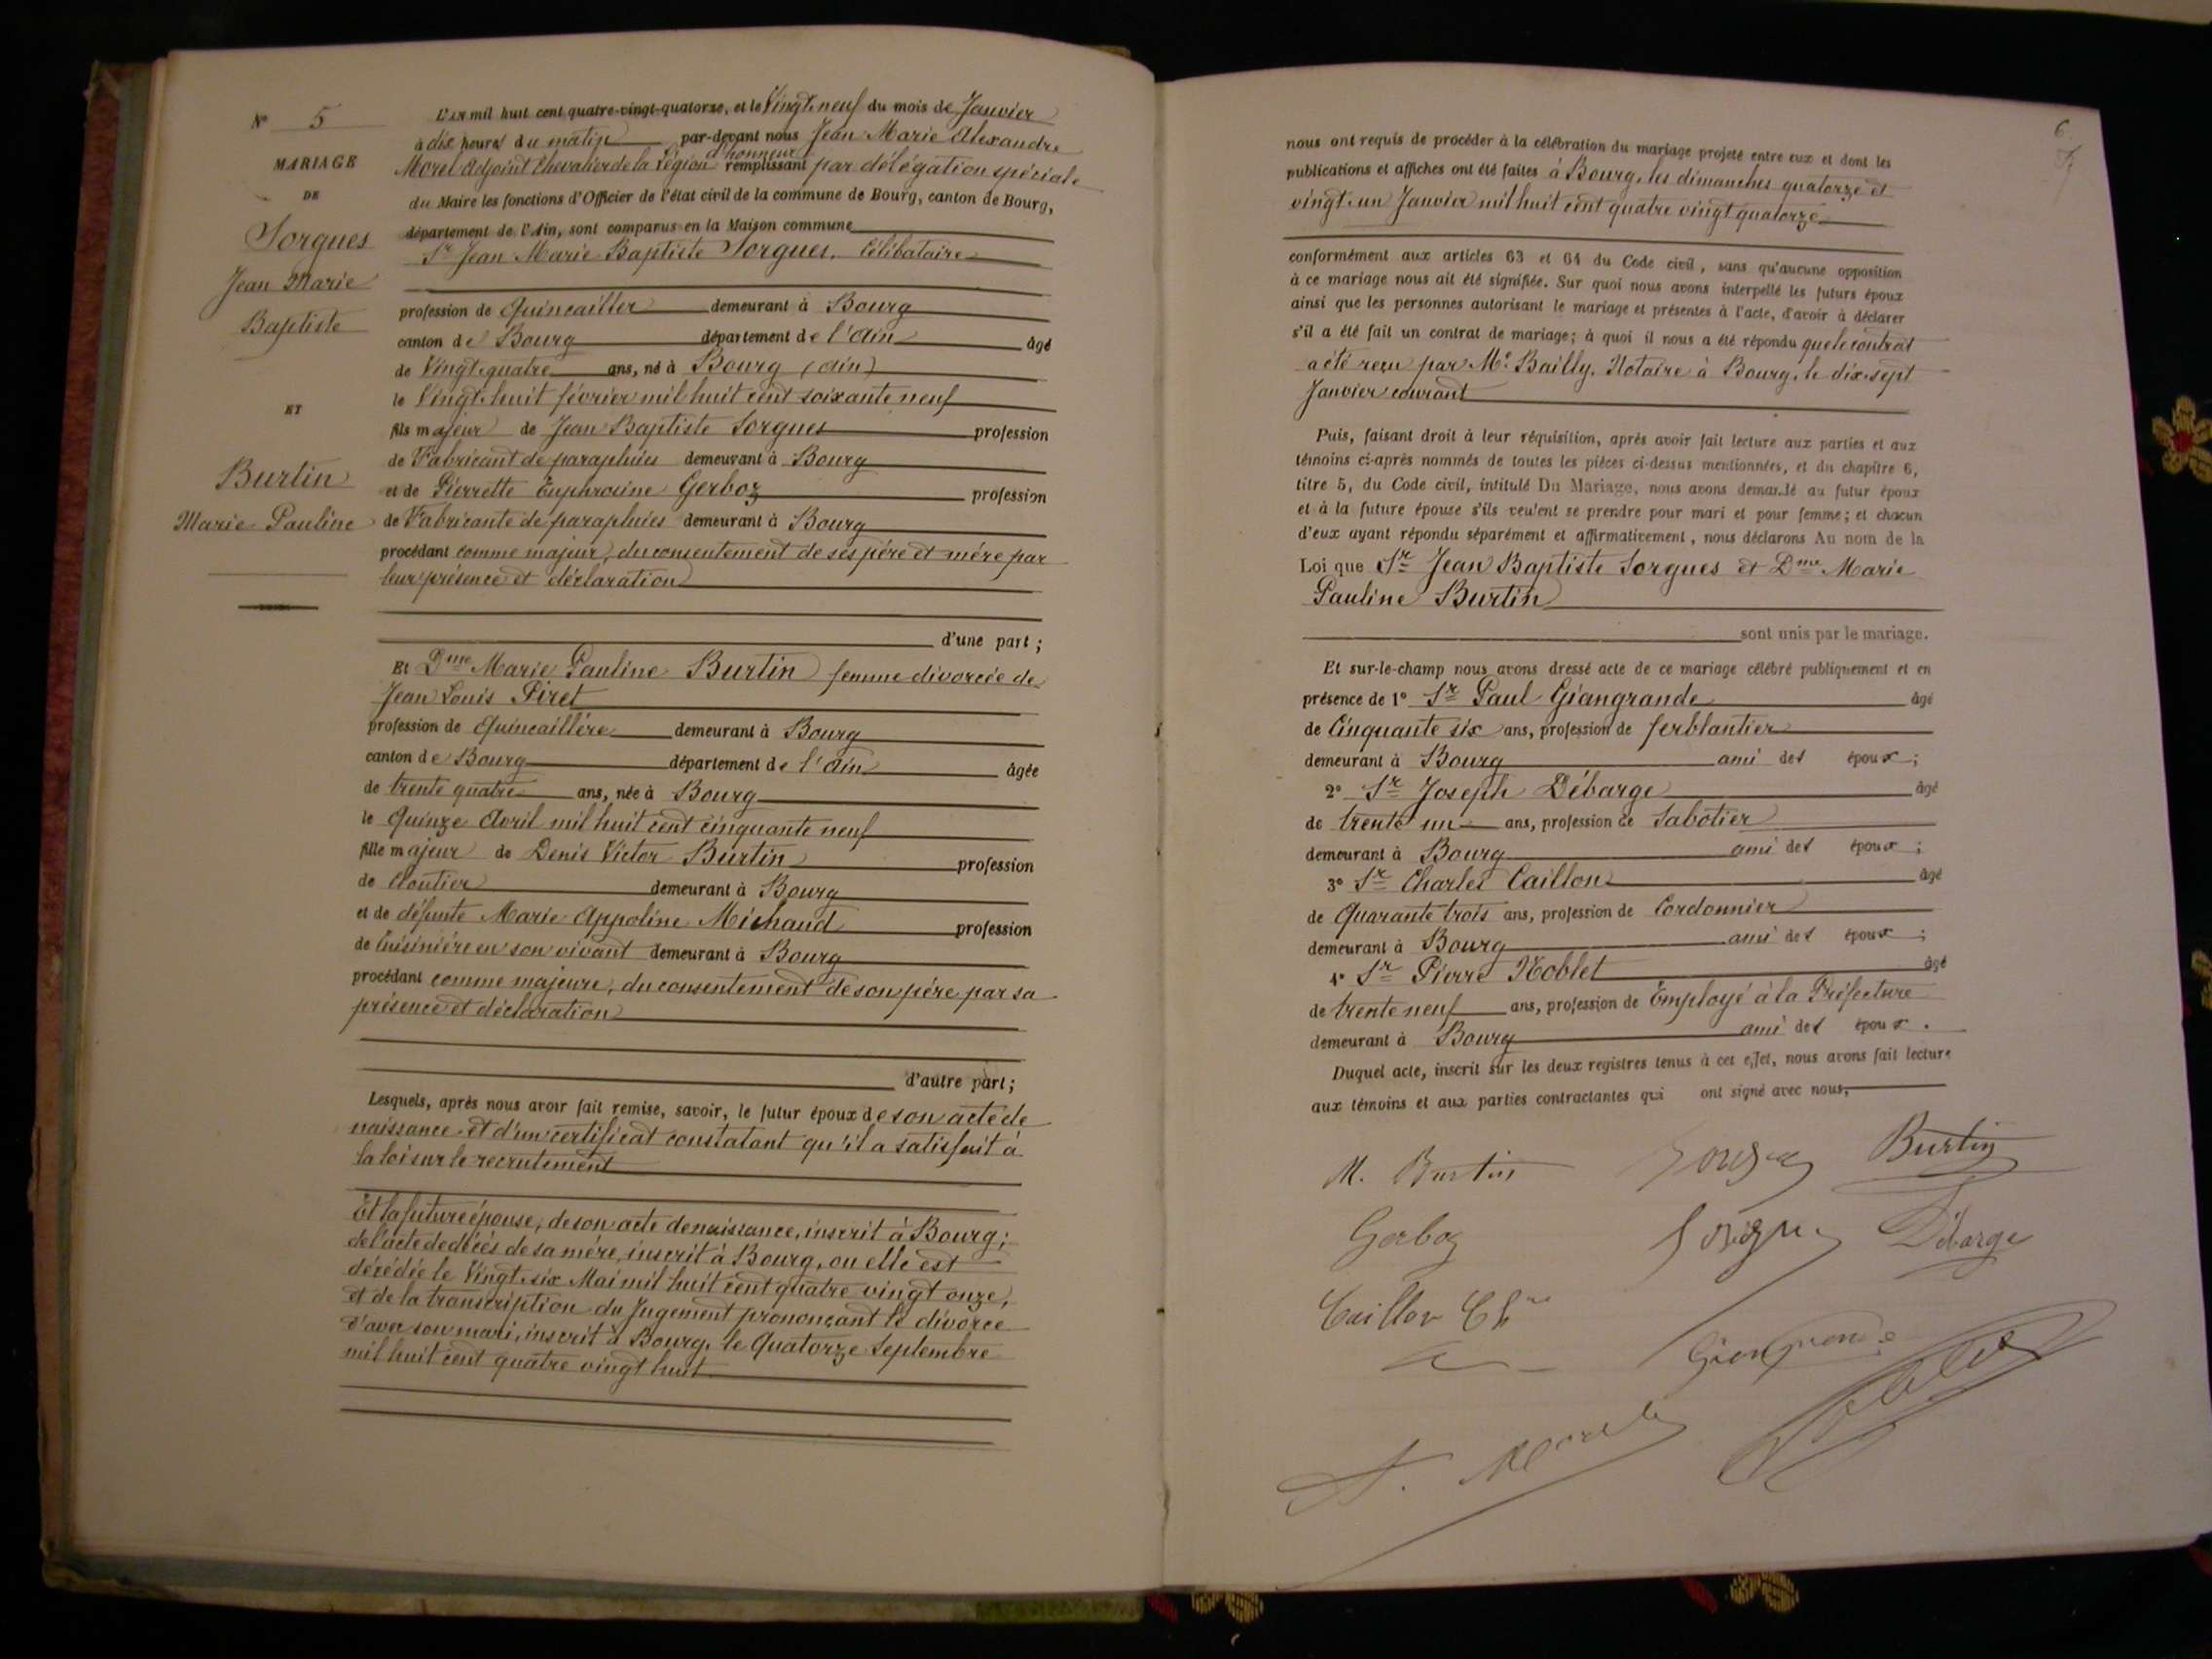 N° 5
MARIAGE
DE
Sorgues
Jean Marie
Baptiste
ET
Burtin
Marie Pauline
L'an mil huit cent quatre-vingt-quatorze, et le Vingt-neuf du mois de Janvier
à dix heures du matin par-devant nous Jean Marie Alexandre
Morel Adjoint Chevalier de la Légion d'honneur remplissant par délégation spéciale
du Maire les fonctions d'Officier de l'état civil de la commune de Bourg, canton de Bourg,
département de l'Ain, sont comparus en la Maison commune
Sr Jean Marie Baptiste Sorgues, Célibataire
profession de Quincailler demeurant à Bourg
canton de Bourg département de l'Ain âgé
de Vingt-quatre ans, né à Bourg (Ain)
le Vingt-huit février mil huit cent soixante neuf
fils majeur de Jean Baptiste Sorgues profession
de Fabricant de parapluies demeurant à Bourg
et de Pierrette Euphrosine Gerboz profession
de Fabricante de parapluies demeurant à Bourg
procédant comme majeur, du consentement de ses père et mère par
leur présence et déclaration
d'une part ;
Et Dme Marie Pauline Burtin femme divorcée de
Jean Louis Piret
profession de Quincaillère demeurant à Bourg
canton de Bourg département de l'Ain âgée
de trente quatre ans, née à Bourg
le Quinze Avril mil huit cent cinquante neuf
fille majeur de Denis Victor Burtin profession
de Cloutier demeurant à Bourg
et de défunte Marie Appoline Michaud profession
de Cuisinière en son vivant demeurant à Bourg
procédant comme majeure, du consentement de son père par sa
présence et déclaration
d'autre part ;
Lesquels, après nous avoir fait remise, savoir, le futur époux de son acte de
naissance et d'un certificat constatant qu'il a satisfait à
la loi sur le recrutement
Et la future épouse, de son acte de naissance, inscrit à Bourg ;
de l'acte de décès de sa mère, inscrit à Bourg, ou elle est
décédée le Vingt-six Mai mil huit cent quatre vingt onze,
et de la transcription du Jugement prononçant le divorce
d'avec son mari, inscrit à Bourg, le Quatorze Septembre
mil huit cent quatre vingt huit
6
nous ont requis de procéder à la célébration du mariage projeté entre eux et dont les
publications et affiches ont été faites à Bourg, les dimanches quatorze et
vingt-un Janvier mil huit cent quatre vingt quatorze
conformément aux articles 63 et 64 du Code civil, sans qu'aucune opposition
à ce mariage nous ait été signifiée. Sur quoi nous avons interpellé les futurs époux
ainsi que les personnes autorisant le mariage et présentes à l'acte, d'avoir à déclarer
s'il a été fait un contrat de mariage ; à quoi il nous a été répondu que le contrat
a été reçu par Me Bailly, Notaire à Bourg, le dix-sept
Janvier courant
Puis, faisant droit à leur réquisition, après avoir fait lecture aux parties et aux
témoins ci-après nommés de toutes les pièces ci-dessus mentionnées, et du chapitre 6,
titre 5, du Code civil, intitulé Du Mariage, nous avons demandé au futur époux
et à la future épouse s'ils veulent se prendre pour mari et pour femme ; et chacun
d'eux ayant répondu séparément et affirmativement, nous déclarons Au nom de la
Loi que Sr Jean Baptiste Sorgues et Dme Marie
Pauline Burtin
sont unis par le mariage.
Et sur-le-champ nous avons dressé acte de ce mariage célébré publiquement et en
présence de 1° Sr Paul Giangrande âgé
de Cinquante six ans, profession de ferblantier
demeurant à Bourg ami des époux ;
2° Sr Joseph Débarge âgé
de trente un ans, profession de Sabotier
demeurant à Bourg ami des époux ;
3° Sr Charles Caillon âgé
de Quarante trois ans, profession de Cordonnier
demeurant à Bourg ami des époux ;
4° Sr Pierre Noblet âgé
de trente neuf ans, profession de Employé à la Préfecture
demeurant à Bourg ami des époux.
Duquel acte, inscrit sur les deux registres tenus à cet effet, nous avons fait lecture
aux témoins et aux parties contractantes qui ont signé avec nous,
M. Burtin Sorgues Burtin
Gerboz Sorgues Débarge
Caillon Ch
Giangrande
A. Morel